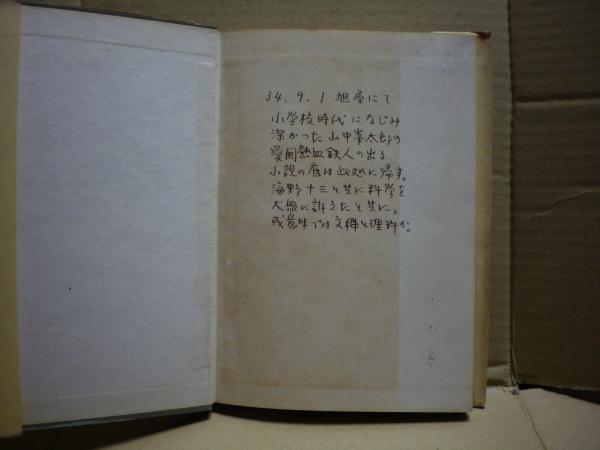 34.9.1 旭屋にて
小学校時代になじみ
深かった山中峯太郎の
愛国熱血鉄人の出る
小説の底は此処に帰す。
海野十三と共に科学を
大衆に訴えたと共に。
或意味では文科と理科か。